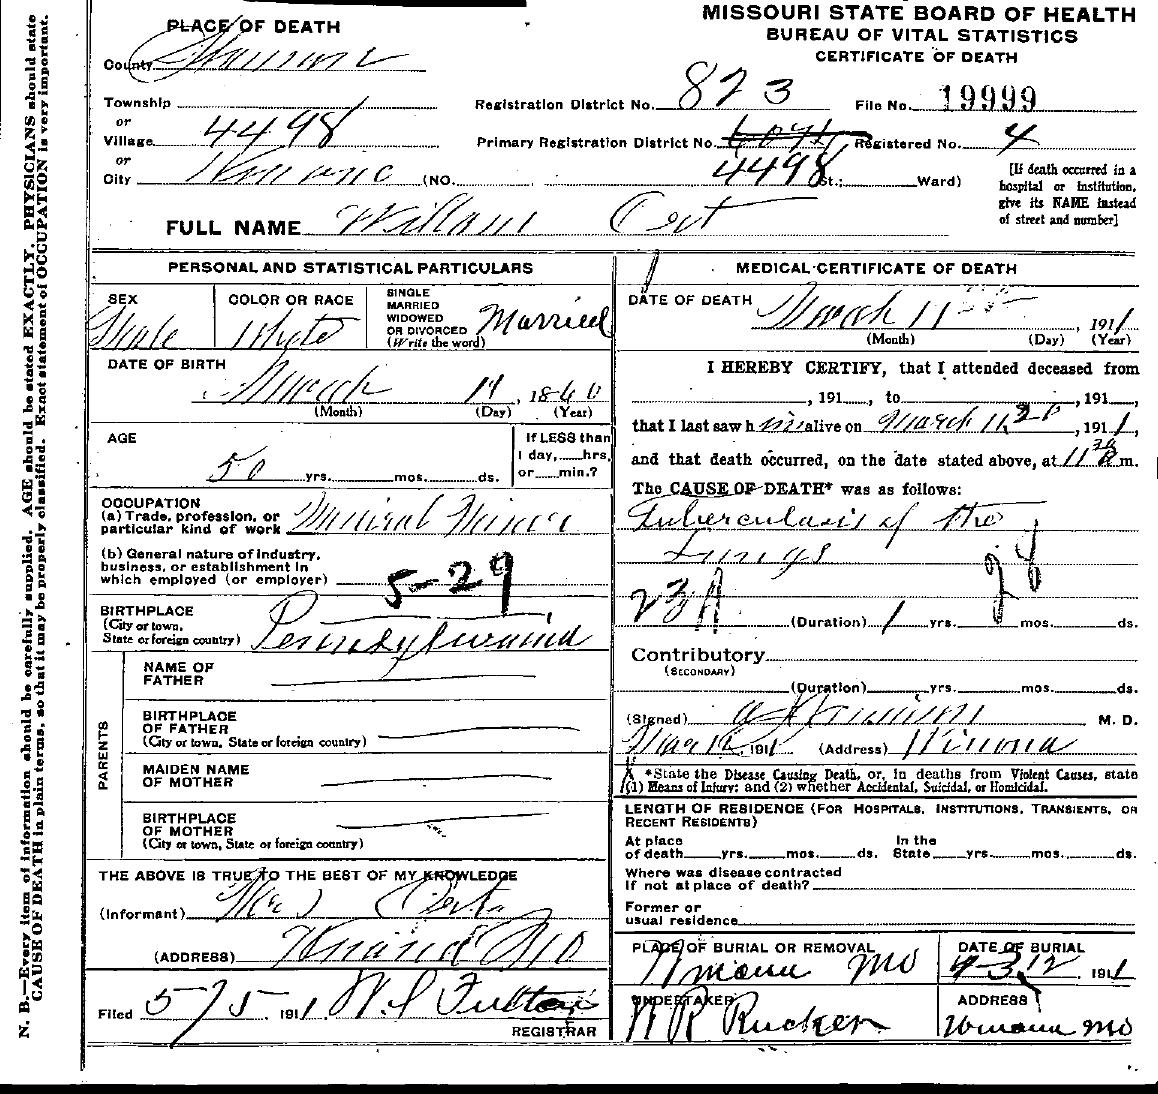 MISSOURI STATE BOARD OF HEALTH
BUREAU OF VITAL STATISTICS
CERTIFICATE OF DEATH
PLACE OF DEATH
County Shannon
Township
or
Village 4498
or
City Winona (NO. St.; Ward)
Registration District No. 823 File No. 19999
Primary Registration District No. 4498 Registered No. 4
[If death occurred in a
hospital or institution,
give its NAME instead
of street and number]
FULL NAME William
PERSONAL AND STATISTICAL PARTICULARS
SEX Male
COLOR OR RACE White
SINGLE
MARRIED
WIDOWED
OR DIVORCED
(Write the word) Married
DATE OF BIRTH
March 11, 1860
(Month) (Day) (Year)
AGE
50 yrs. mos. ds.
If LESS than
1 day, hrs.
or min.?
OCCUPATION
(a) Trade, profession, or
particular kind of work Mineral Miner
(b) General nature of industry,
business, or establishment in
which employed (or employer)
5-29
BIRTHPLACE
(City or town,
State or foreign country) Pennsylvania
PARENTS
NAME OF
FATHER
BIRTHPLACE
OF FATHER
(City or town, State or foreign country)
MAIDEN NAME
OF MOTHER
BIRTHPLACE
OF MOTHER
(City or town, State or foreign country)
THE ABOVE IS TRUE TO THE BEST OF MY KNOWLEDGE
(Informant) Mrs
(ADDRESS) Winona Mo
Filed 5/5 1911 W S Fulton
REGISTRAR
MEDICAL CERTIFICATE OF DEATH
DATE OF DEATH March 11, 1911
(Month) (Day) (Year)
I HEREBY CERTIFY, that I attended deceased from
, 191 , to , 191 ,
that I last saw him alive on March 11, 1911,
and that death occurred, on the date stated above, at 11 30 m.
The CAUSE OF DEATH* was as follows:
Tuberculosis of the
Lungs
28
23A
(Duration) 1 yrs. mos. ds.
Contributory
(SECONDARY)
(Duration) yrs. mos. ds.
(Signed) M. D.
Mar 12, 1911 (Address) Winona
*State the Disease Causing Death, or, in deaths from Violent Causes, state
(1) Means of Injury; and (2) whether Accidental, Suicidal, or Homicidal.
LENGTH OF RESIDENCE (FOR HOSPITALS, INSTITUTIONS, TRANSIENTS, OR
RECENT RESIDENTS)
At place
of death yrs. mos. ds.
In the
State yrs. mos. ds.
Where was disease contracted
if not at place of death?
Former or
usual residence
PLACE OF BURIAL OR REMOVAL
Winona Mo
DATE OF BURIAL
3 12, 1911
UNDERTAKER
W R Rucker
ADDRESS
Winona Mo
N. B.—Every item of information should be carefully supplied. AGE should be stated EXACTLY. PHYSICIANS should state
CAUSE OF DEATH in plain terms, so that it may be properly classified. Exact statement of OCCUPATION is very important.